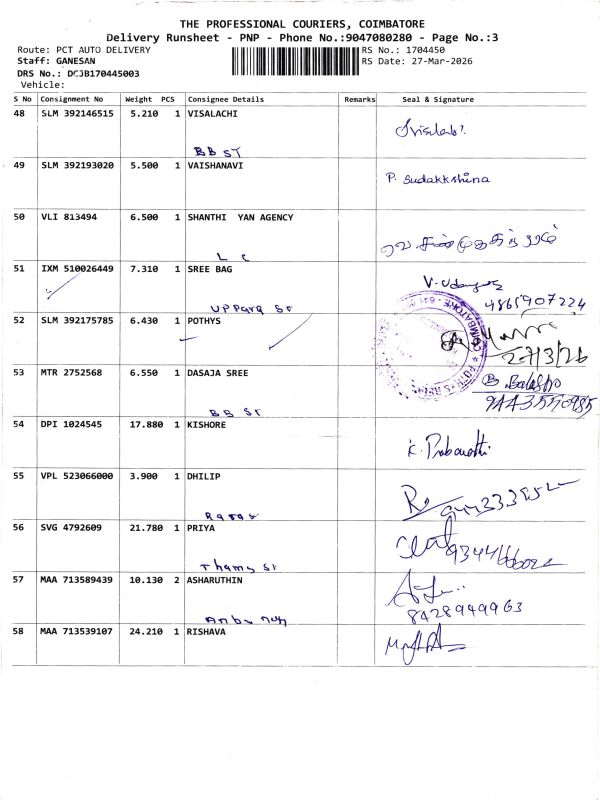 THE PROFESSIONAL COURIERS, COIMBATORE
Delivery Runsheet - PNP - Phone No.:9047080280 - Page No.:3
Route: PCT AUTO DELIVERY RS No.: 1704450
Staff: GANESAN RS Date: 27-Mar-2026
DRS No.: DCJB170445003
Vehicle:
S No Consignment No Weight PCS Consignee Details Remarks Seal & Signature
48 SLM 392146515 5.210 1 VISALACHI
BB ST
49 SLM 392193020 5.500 1 VAISHANAVI
P. Sudakkshina
50 VLI 813494 6.500 1 SHANTHI YAN AGENCY
L C
51 IXM 510026449 7.310 1 SREE BAG
V. Udaya
UPPara St 4865907224
52 SLM 392175785 6.430 1 POTHYS
27/3/26
53 MTR 2752568 6.550 1 DASAJA SREE
BB ST 9443550985
54 DPI 1024545 17.880 1 KISHORE
55 VPL 523066000 3.900 1 DHILIP
56 SVG 4792609 21.780 1 PRIYA
Thamu St
57 MAA 713589439 10.130 2 ASHARUTHIN
8428949963
58 MAA 713539107 24.210 1 RISHAVA